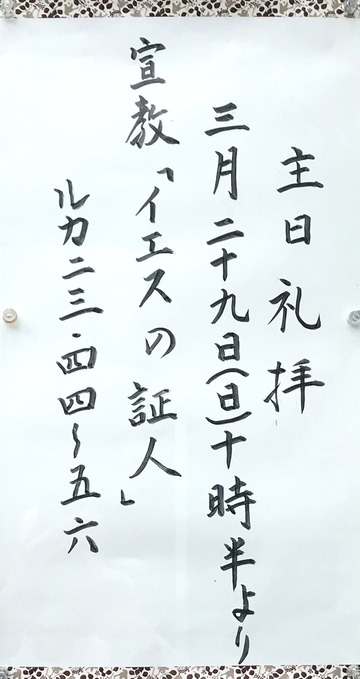 主日礼拝
三月二十九日(日)十時半より
宣教「イエスの証人」
ルカ二三・四四~五六